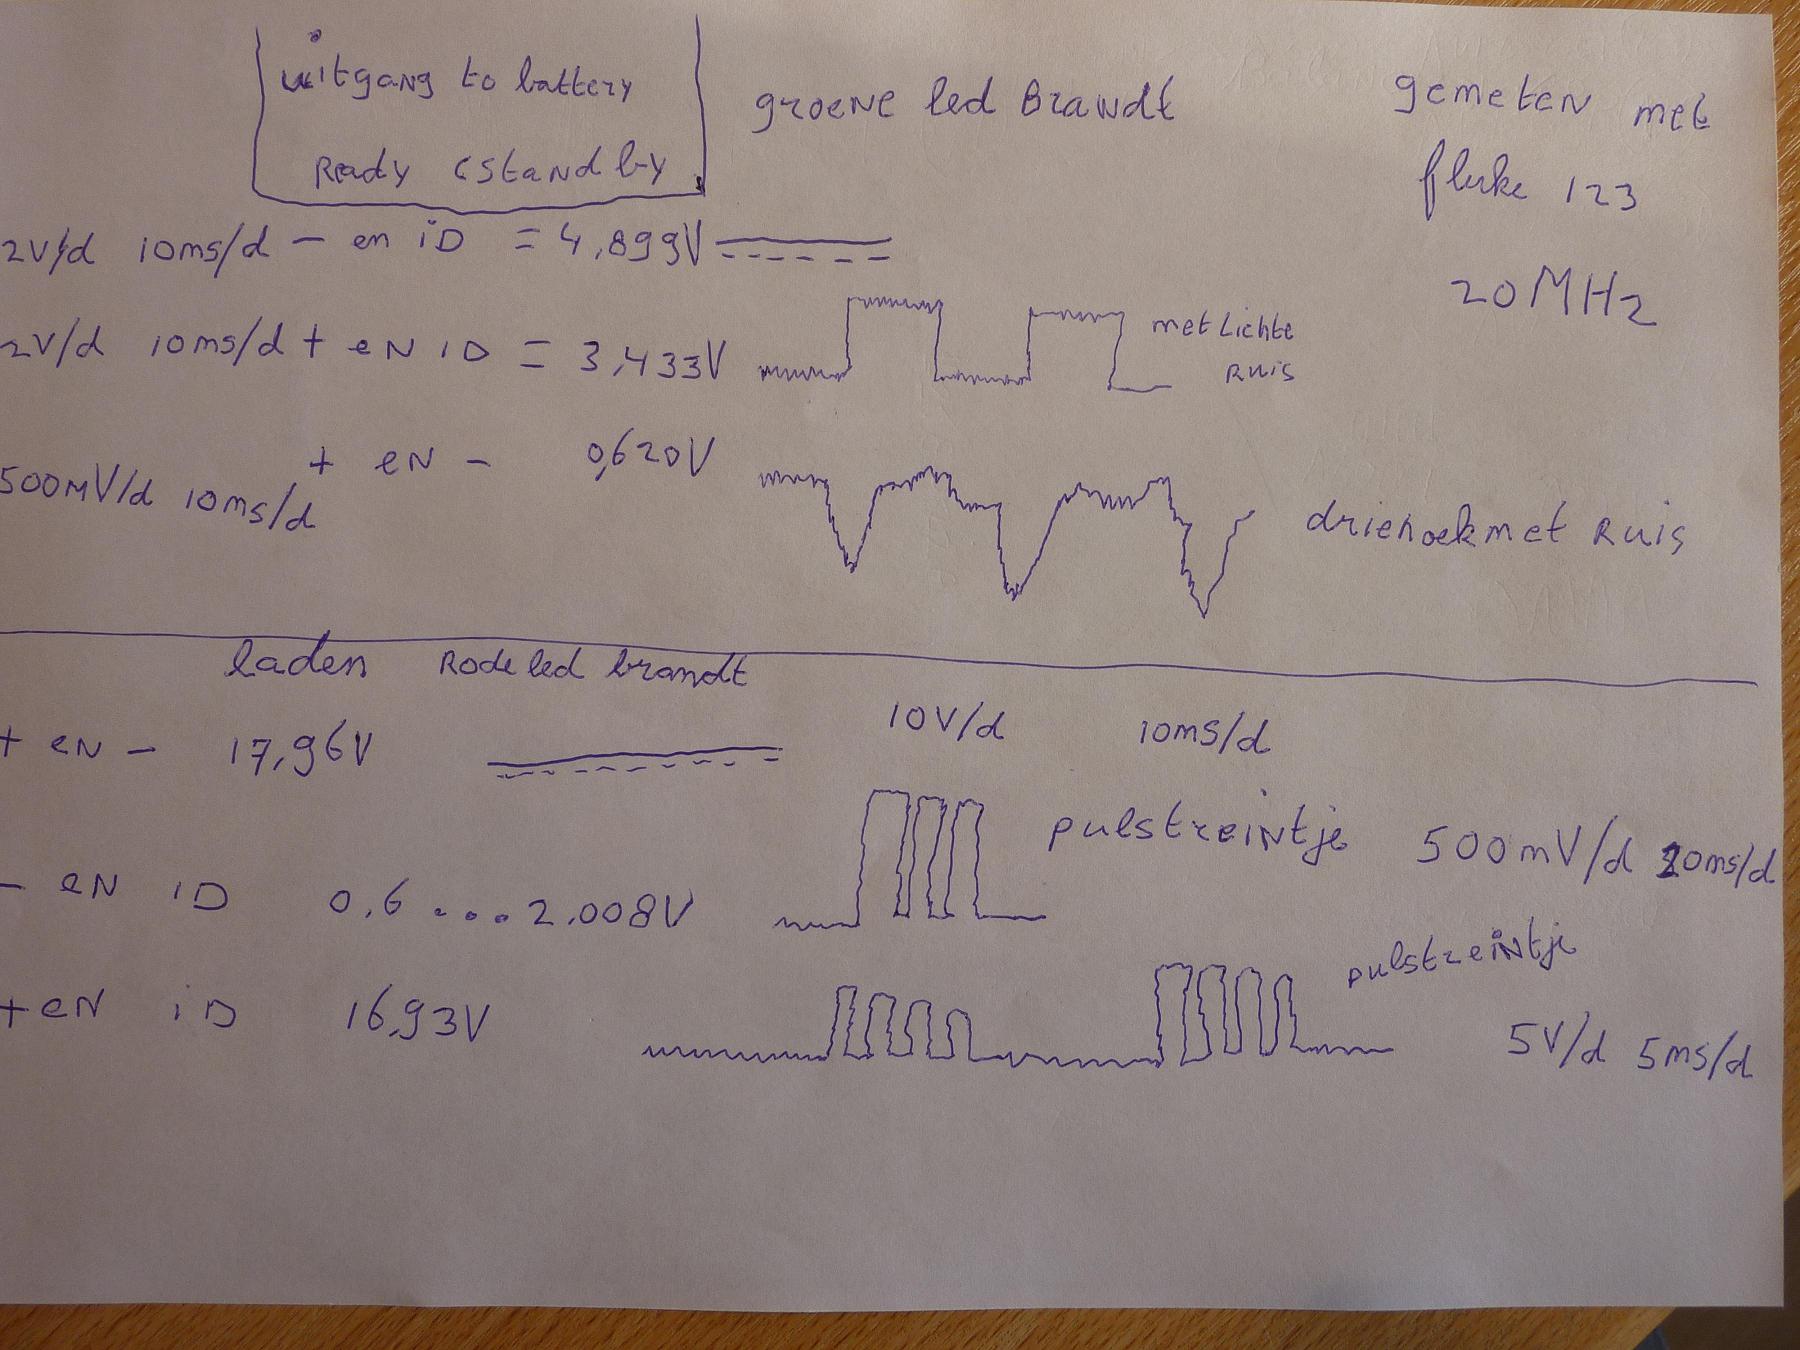 uitgang to battery
Ready (standby
groene led Brandt
gemeten met
fluke 123
20MHz
2V/d 10ms/d - en iD = 4,899V
2V/d 10ms/d + en iD = 3,433V
met Lichte
Ruis
500mV/d 10ms/d + en - 0,620V
driehoek met Ruis
laden Rode led brandt
+ en - 17,96V 10V/d 10ms/d
- en iD 0,6...2,008V pulstreintje 500mV/d 20ms/d
+ en iD 16,93V pulstreintje
5V/d 5ms/d